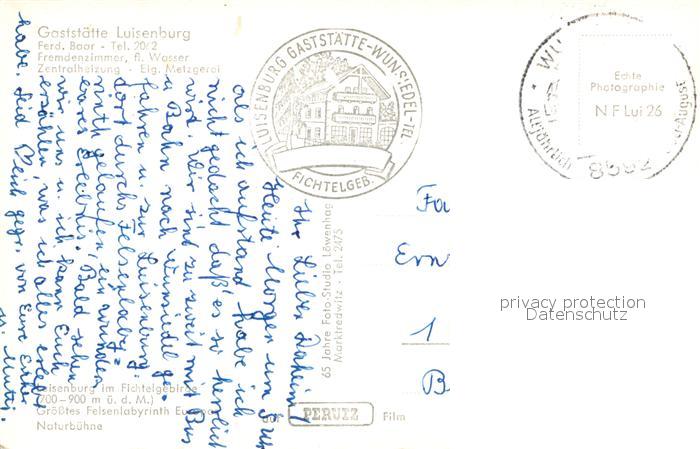 Gaststätte Luisenburg
Ferd. Baar - Tel. 20/2
Fremdenzimmer, fl. Wasser
Zentralheizung - Eig. Metzgerei
LUISENBURG GASTSTÄTTE-WUNSIEDEL-TEL.
FICHTELGEB.
Echte
Photographie
N F Lui 26
Alljährlich
August
8592
Ihr Lieben Daheim!
Heute Morgen um 5 Uhr
als ich aufstand habe ich
nicht gedacht daß es so herrlich
wird. Wir sind zu zweit mit Bus
u Bahn nach Wunsiedel ge-
fahren u. zur Luisenburg
dort durchs Felsenlaby-
rinth gelaufen, ein wunder-
bares Erlebnis. Bald sehen
wir uns u. ich kann Euch
erzählen, was ich alles erlebt
habe. Seid lieb gegr. von Eure
u. Mutti.
65 Jahre Foto-Studio Löwenhag
Marktredwitz - Tel. 2475
Fa
Ern
1
B
privacy protection
Datenschutz
Luisenburg im Fichtelgebirge
(700-900 m ü. d. M.)
Größtes Felsenlabyrinth Europas
Naturbühne
auf PERUTZ Film